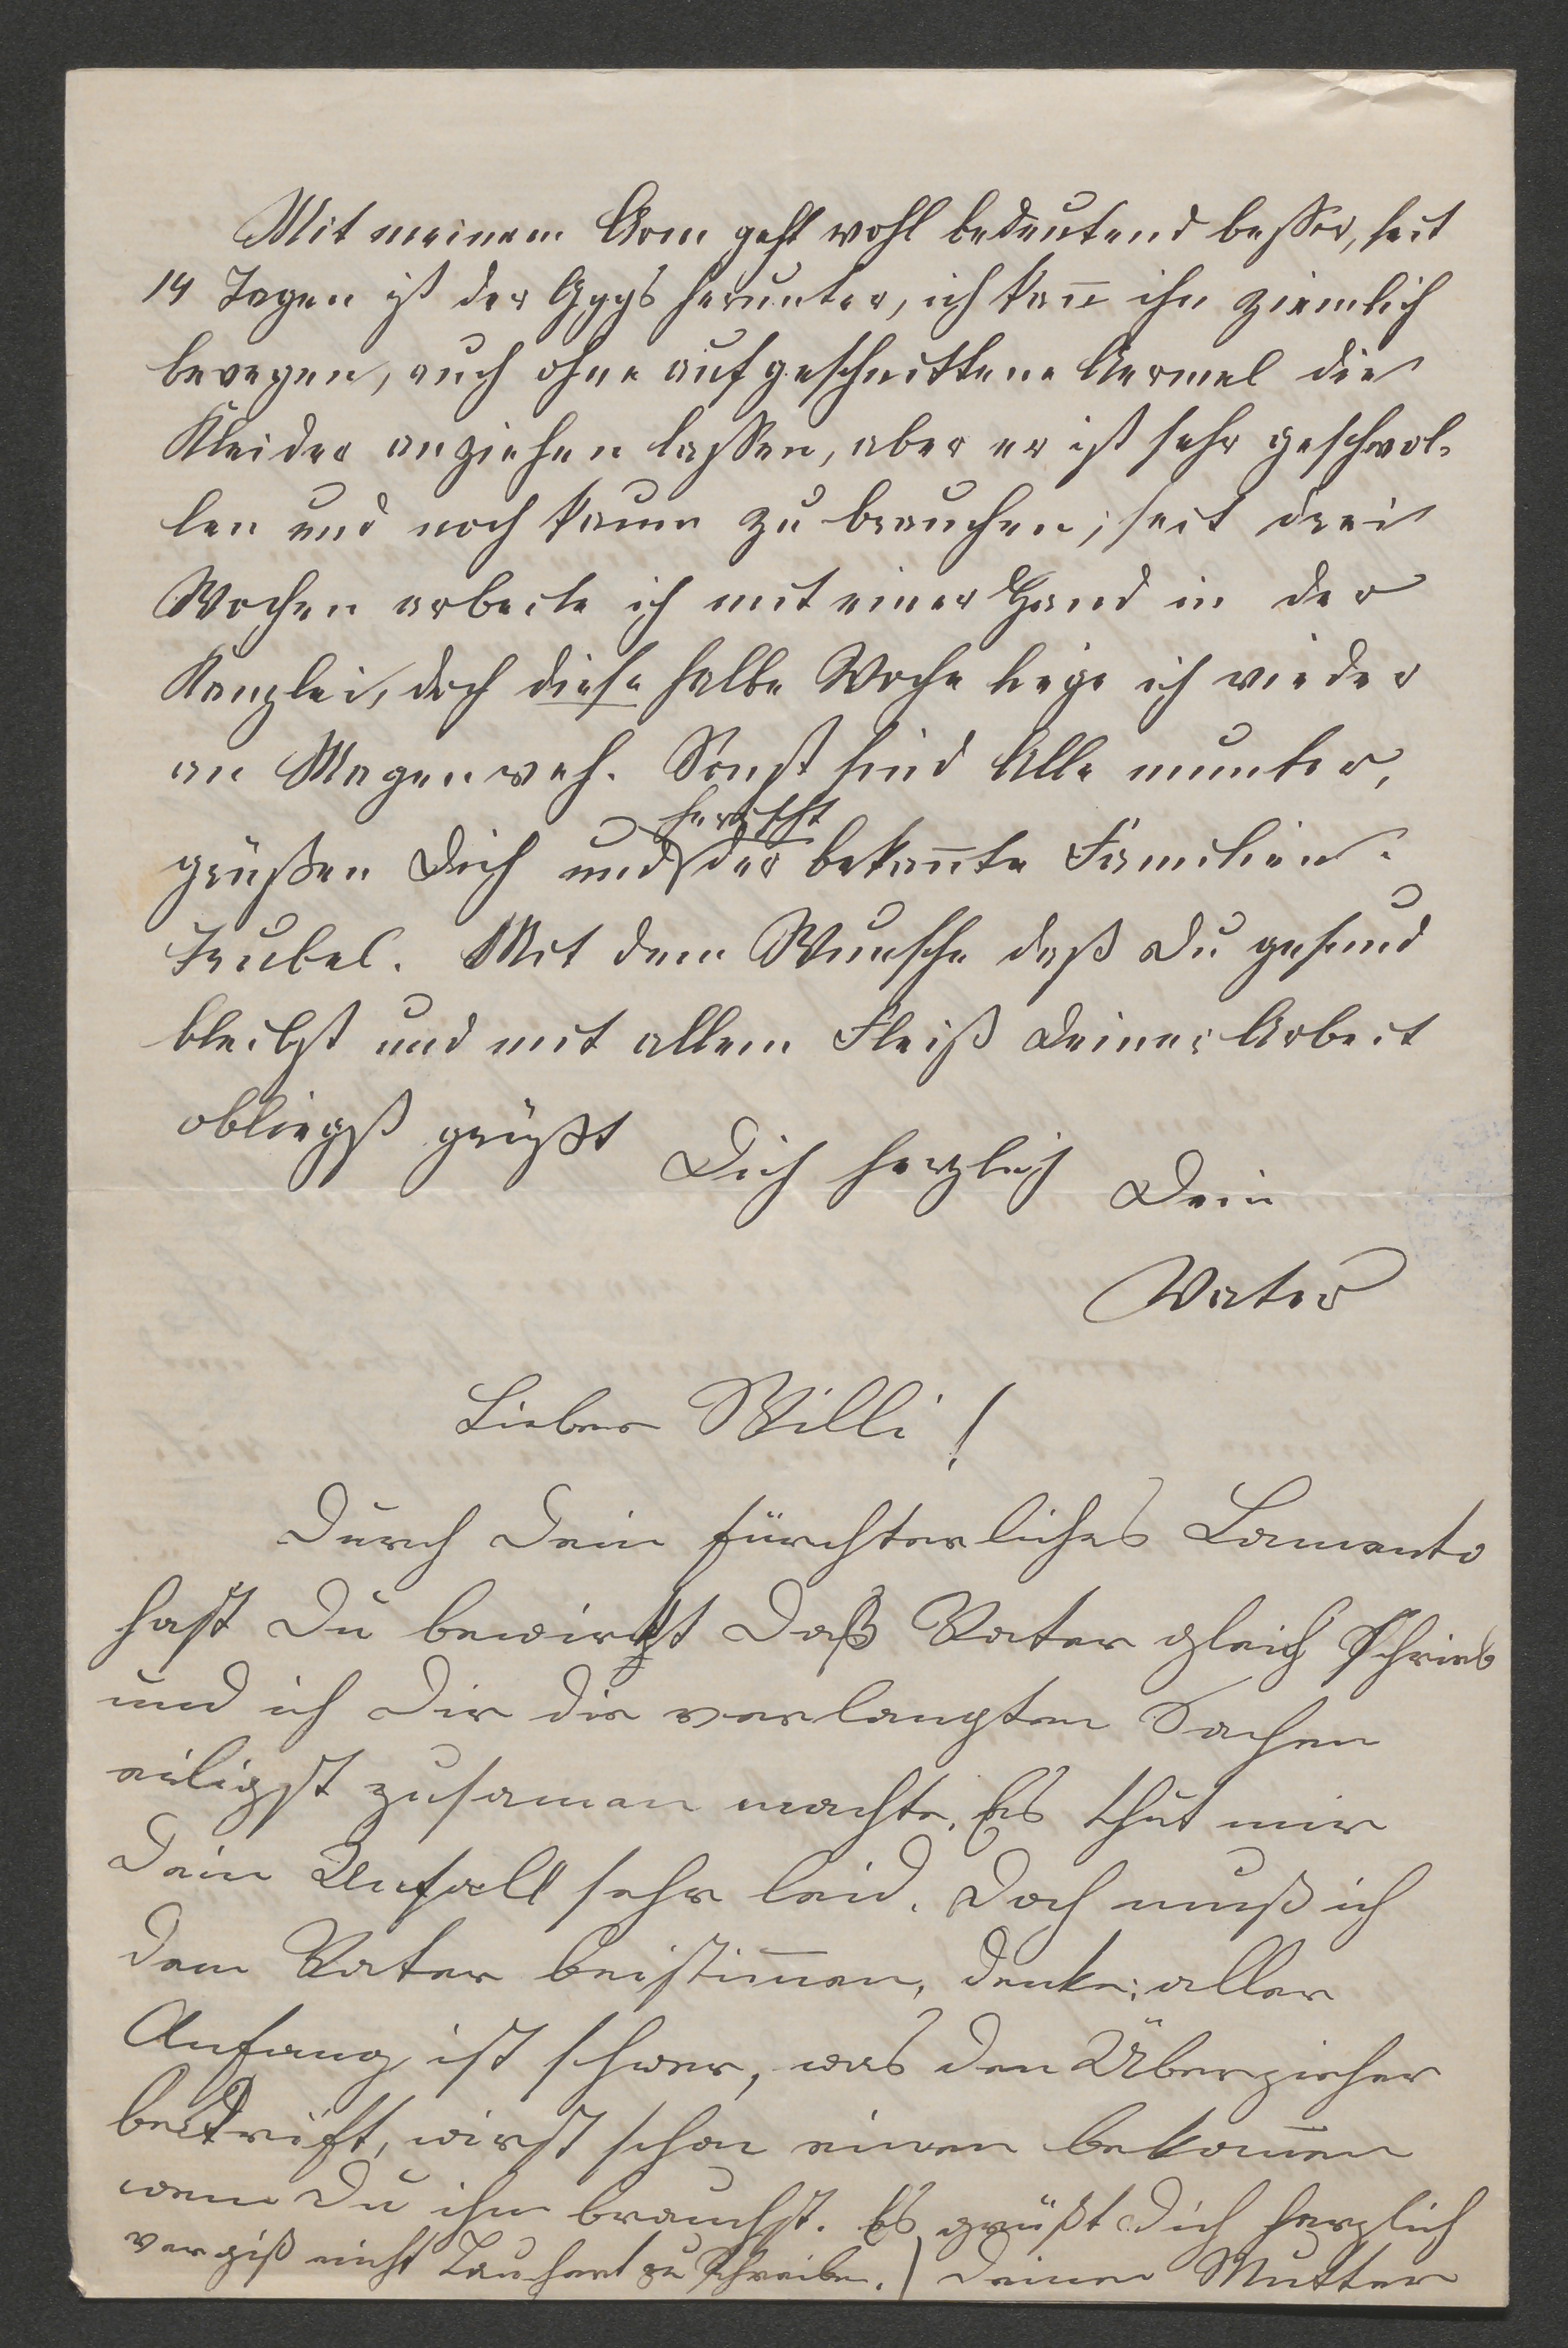 Mit meinem Arm geht wohl bedeutend besser, seit
14 Tagen ist der Gyps herunter, ich kan̄ ihn ziemlich
bewegen, auch ohne aufgeschnittene Aermel die
Kleider anziehen lassen, aber er ist sehr geschwol-
len und noch kaum zu brauchen; seit drei
Wochen arbeite ich mit einer Hand in der
Kanzlei, doch diese halbe Woche liege ich wieder
an Magenweh. Sonst sind Alle munter,
grüßen Dich und herrscht der bekan̄te Familien-
Trubel. Mit dem Wunsche daß Du gesund
bleibst und mit allem Fleiß Deiner Arbeit
obliegst grüßt Dich herzlich Dein
Vater
Lieber Willi!
Durch Dein fürchterliches Lamento
hast Du bewirkt daß Vater gleich schrieb
und ich Dir die verlangten Sachen
eiligst zusamen machte. Es thut mir
Dein Unfall sehr leid. Doch muß ich
dem Vater beistim̄en, denke: aller
Anfang ist schwer, was den Überzieher
betrift, wirst schon einen bekom̄en
wenn Du ihn brauchst. Es grüßt Dich herzlich
vergiß nicht zu schreiben. / Deine Mutter